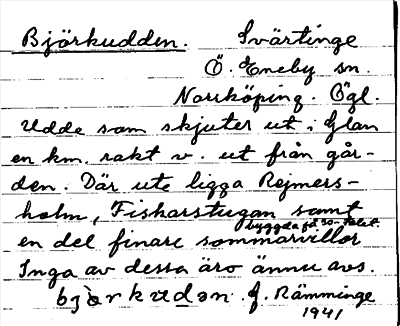 Björkudden. Svärtinge
Ö. Eneby sn.
Norrköping. Ögl.
Udde som skjuter ut i Glan
en km. rakt v. ut från går-
den. Där ute ligga Rejmers-
holm, Fiskarstugan samt
en del finare sommarvillor
byggda på 30-talet.
Inga av dessa äro ännu avs.
G. Rämminge
1941